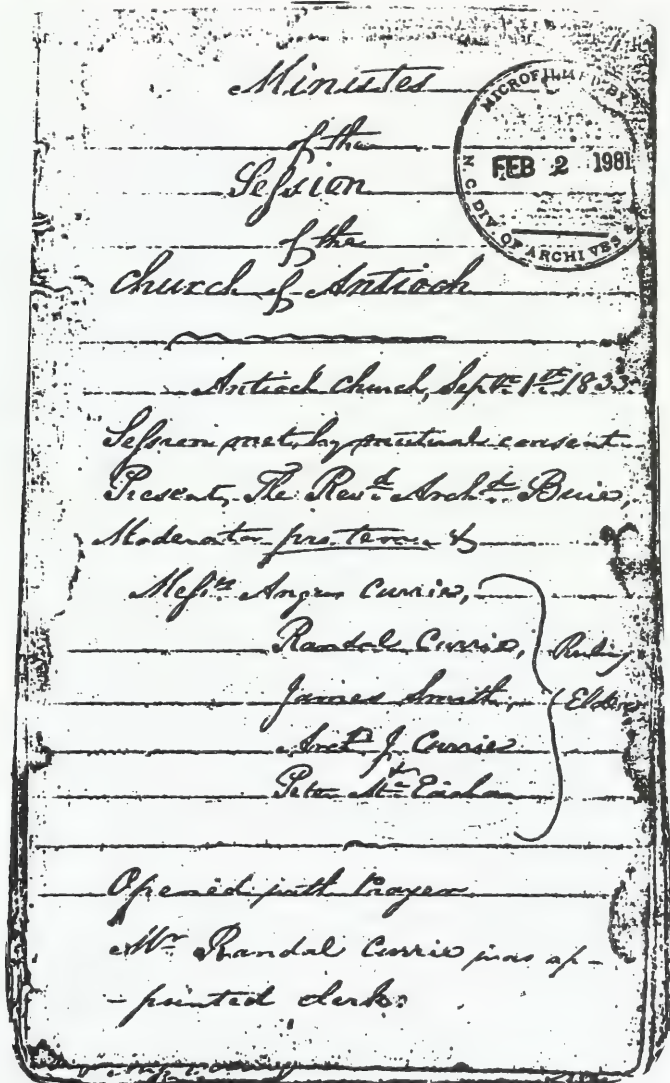 Minutes
of the
Session
of the
Church of Antioch
MICROFILMED BY
FEB 2 1981
N.C. DIV OF ARCHIVES &
Antioch Church, Septr. 1st. 1833
Session met, by mutual consent
Present, The Revd. Archd. Buie,
Moderator pro. tem. &
Messrs. Angus Currie,
Randal Currie,
Ruling
James Smith,
Elders
Archd. J. Currie
&
Peter Mc
Opened with Prayer
Mr Randal Currie was ap-
-pointed clerk.